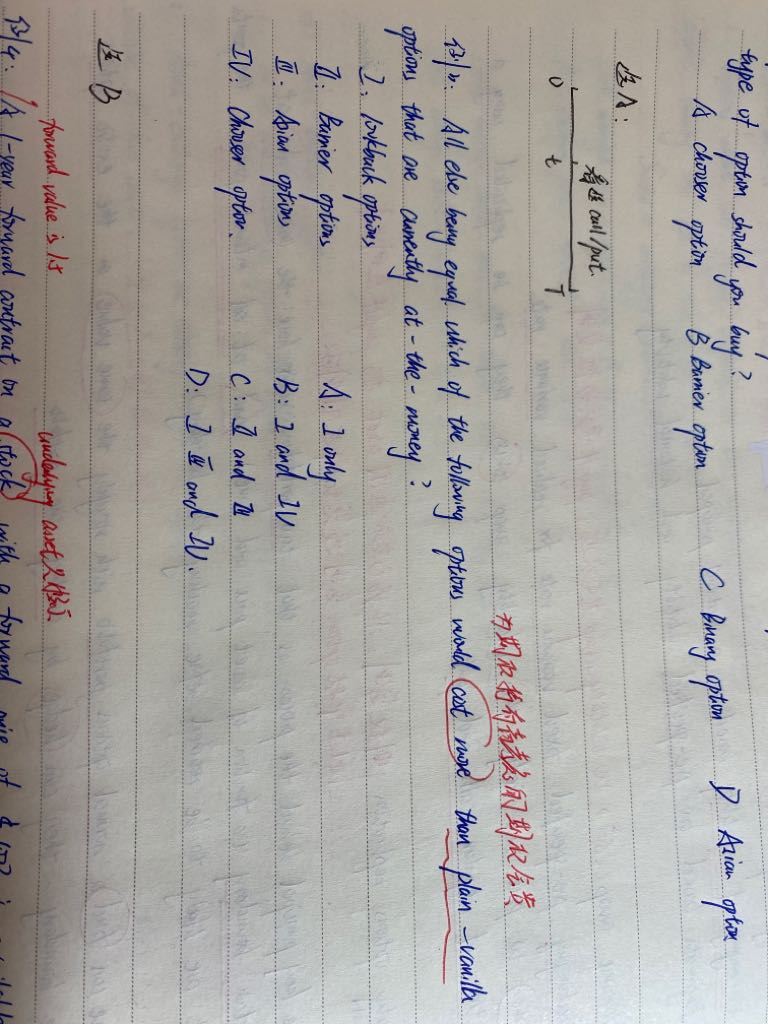 type of option should you buy?
A chooser option B Barrier option C Binary option D Asian option
选A:
0 t T
看选 call/put.
为期权持有者多的期权会贵
例2. All else being equal which of the following options would cost more than plain-vanilla
options that are currently at-the-money?
I. lookback options
II: Barrier options A: I only
III: Asian options B: I and IV
IV: Chooser option. C: II and III
D: I III and IV.
选 B
forward value is 1s underlying asset
例4: A 1-year forward contract on a stock with a forward price of